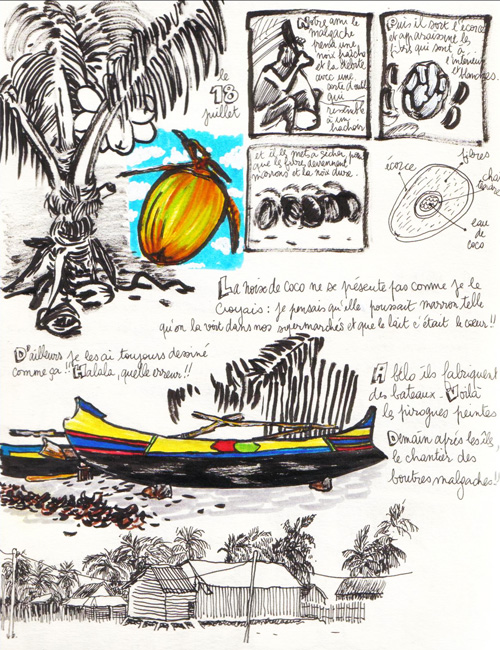 le
18
juillet
Notre ami le
malgache
prend une
noix fraîche
et la
avec une
sorte d'outil
qui
ressemble
à un
hachoir
Puis il sort l'écorce
et apparaissent les
fibres qui sont à
l'intérieur
et blanches.
et il les met à sécher, pour
que les fibres deviennent
marrons et la noix dure.
écorce
fibres
chair
eau
de
coco
La noix de coco ne se présente pas comme je le
croyais : je pensais qu'elle poussait marron telle
qu'on la voit dans nos supermarchés et que le lait c'était le cœur !!
D'ailleurs je les ai toujours dessiné
comme ça !! Halala, quelle erreur !!
A Belo ils fabriquent
des bateaux. Voilà
les pirogues peintes
Demain après les îles,
le chantier des
boutres malgaches !!